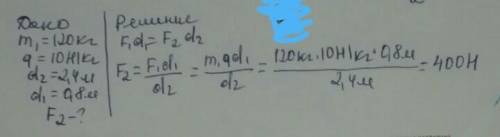 Дано
m₁=120кг
g=10Н/кг
d₂=2,4м
d₁=0,8м
F₂-?
Решение
F₁d₁=F₂d₂
F₂=F₁d₁/d₂=m₁gd₁/d₂=120кг·10Н/кг·0,8м/2,4м=400Н